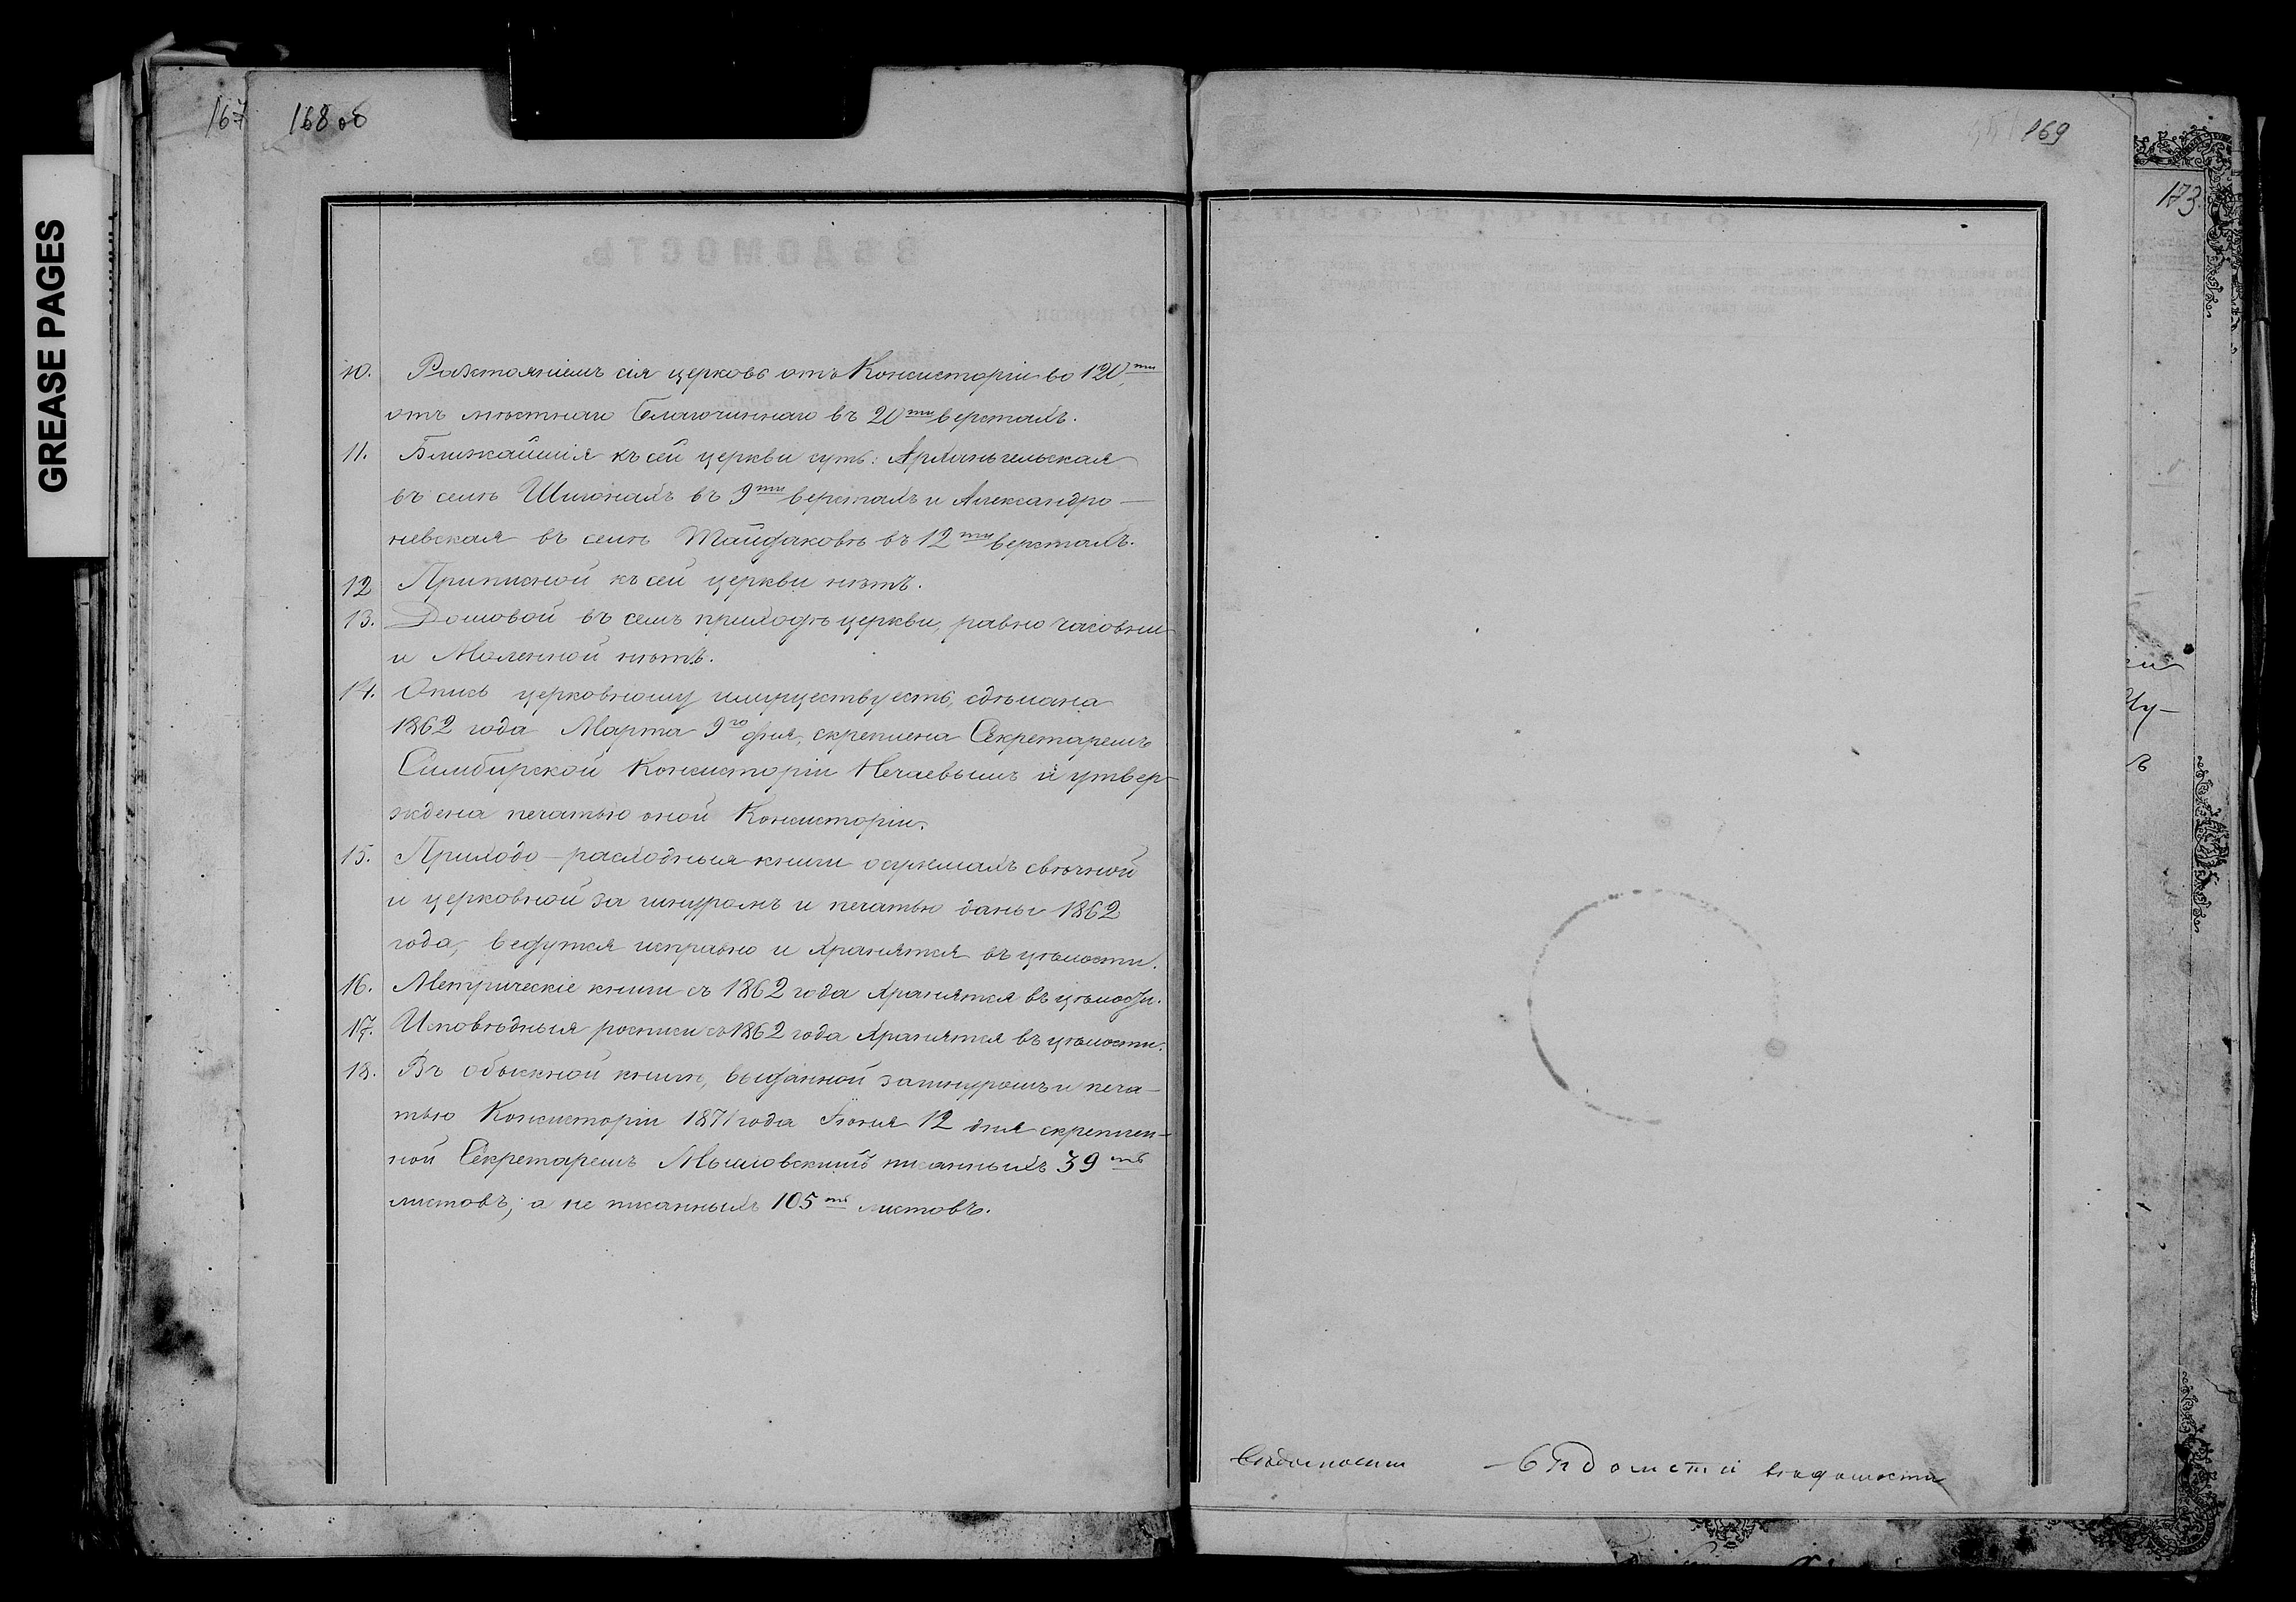 GREASE PAGES
167
168 об
10. Разстояніемъ сія церковь отъ Консисторіи во 120ти
отъ мѣстнаго Благочиннаго въ 20ти верстахъ.
11. Ближайшія къ сей церкви суть: Архангельская
въ селѣ Шигонахъ въ 9ти верстахъ и Александро-
невская въ селѣ Тайдаковѣ въ 12ти верстахъ.
12 Приписной къ сей церкви нѣтъ.
13. Домовой въ семъ приходѣ церкви, равно часовни
и Моленной нѣтъ.
14. Опись церковному имуществу есть, сдѣлана
1862 года Марта 9го дня, скреплена Секретаремъ
Симбирской Консисторіи Нечаевымъ и утвер-
ждена печатью оной Консисторіи.
15. Приходо-расходныя книги о суммахъ свѣчной
и церковной за шнуромъ и печатью даны 1862
года, ведутся исправно и хранятся въ цѣлости.
16. Метрическіе книги съ 1862 года хранятся въ цѣлости.
17. Исповѣдныя росписи съ 1862 года хранятся въ цѣлости.
18. Въ обыскной книгѣ, выданной за шнуромъ и печа-
тью Консисторіи 1871 года Іюня 12 дня скреплен-
ной Секретаремъ писанныхъ 39ть
листовъ, а не писанныхъ 105ть листовъ.
169
173
Ведомости
вѣдомости